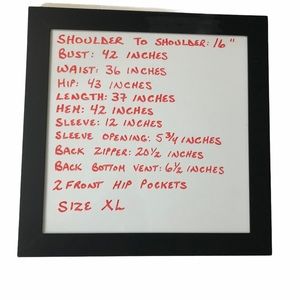 SHOULDER TO SHOULDER: 16"
BUST: 42 INCHES
WAIST: 36 INCHES
HIP: 43 INCHES
LENGTH: 37 INCHES
HEM: 42 INCHES
SLEEVE: 12 INCHES
SLEEVE OPENING: 5 3/4 INCHES
BACK ZIPPER: 20 1/2 INCHES
BACK BOTTOM VENT: 6 1/2 INCHES
2 FRONT HIP POCKETS
SIZE XL